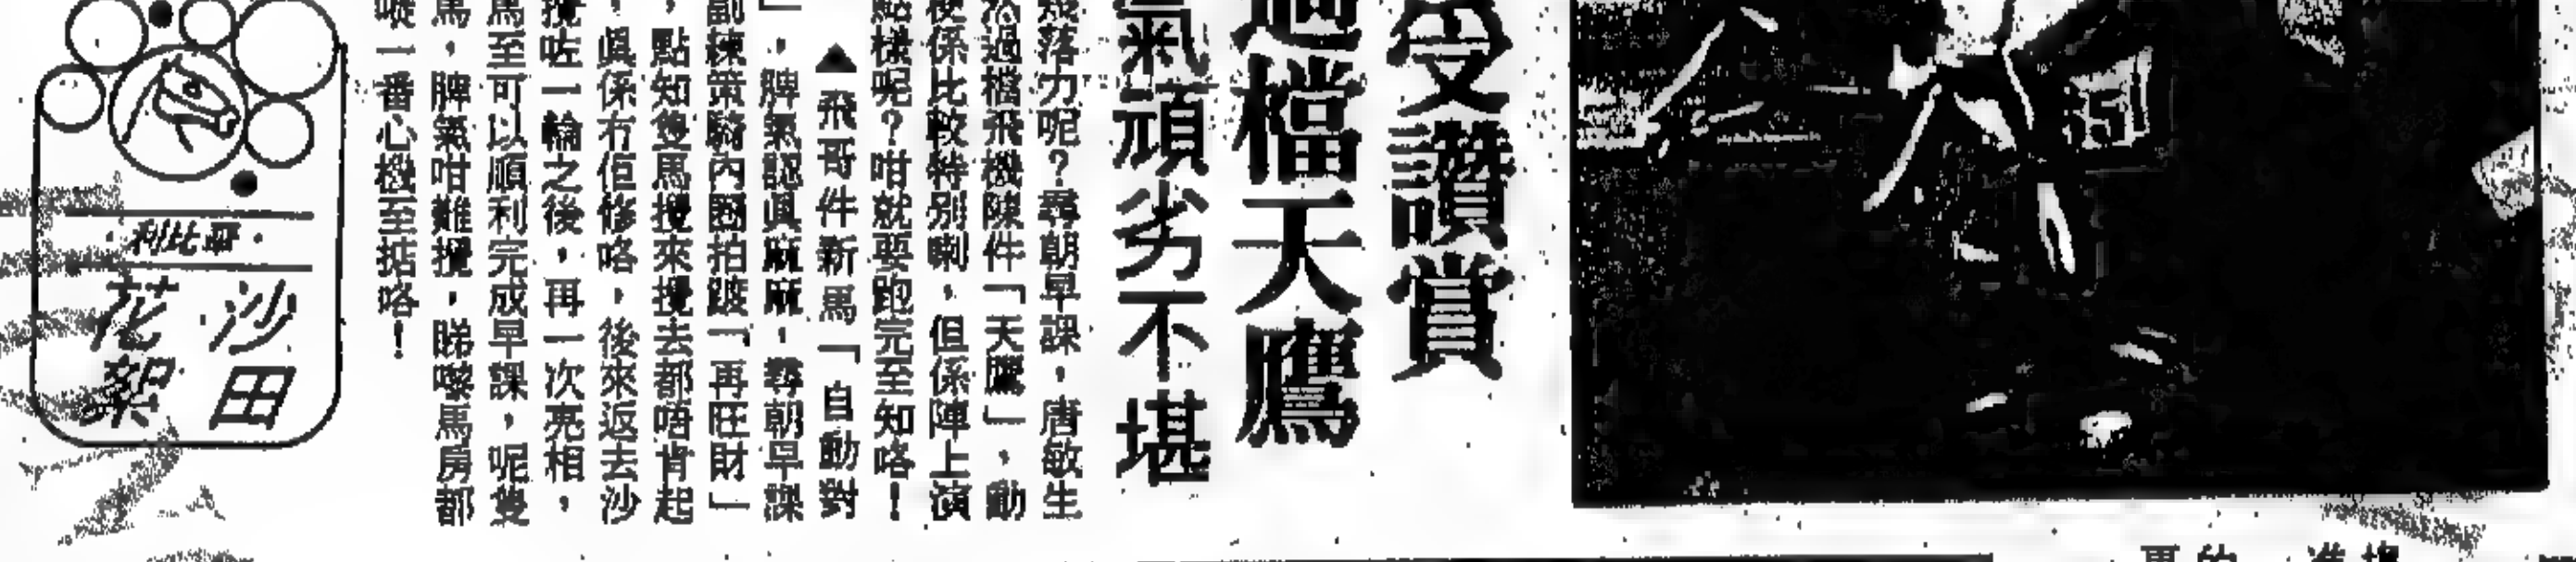 受讚賞
過檔天鷹
氣頑劣不堪
幾落力呢？尋朝早課，唐敏生
然過檔飛機陳件「天鷹」，動
使係比較特別喇，但係陣上演
點樣呢？咁就要跑完至知咯！
▲飛哥件新馬「自動對
」，脾氣認眞麻麻，尋朝早課
副練策騎內圈拍踱「再旺財」
，點知隻馬攪來攪去都唔肯起
，眞係冇佢修咯，後來返去沙
攪咗一輪之後，再一次亮相，
馬至可以順利完成早課，呢隻
馬，脾氣咁難攪，睇嚟馬房都
嘥一番心機至掂咯！
沙田
花絮
·利比亞·
51